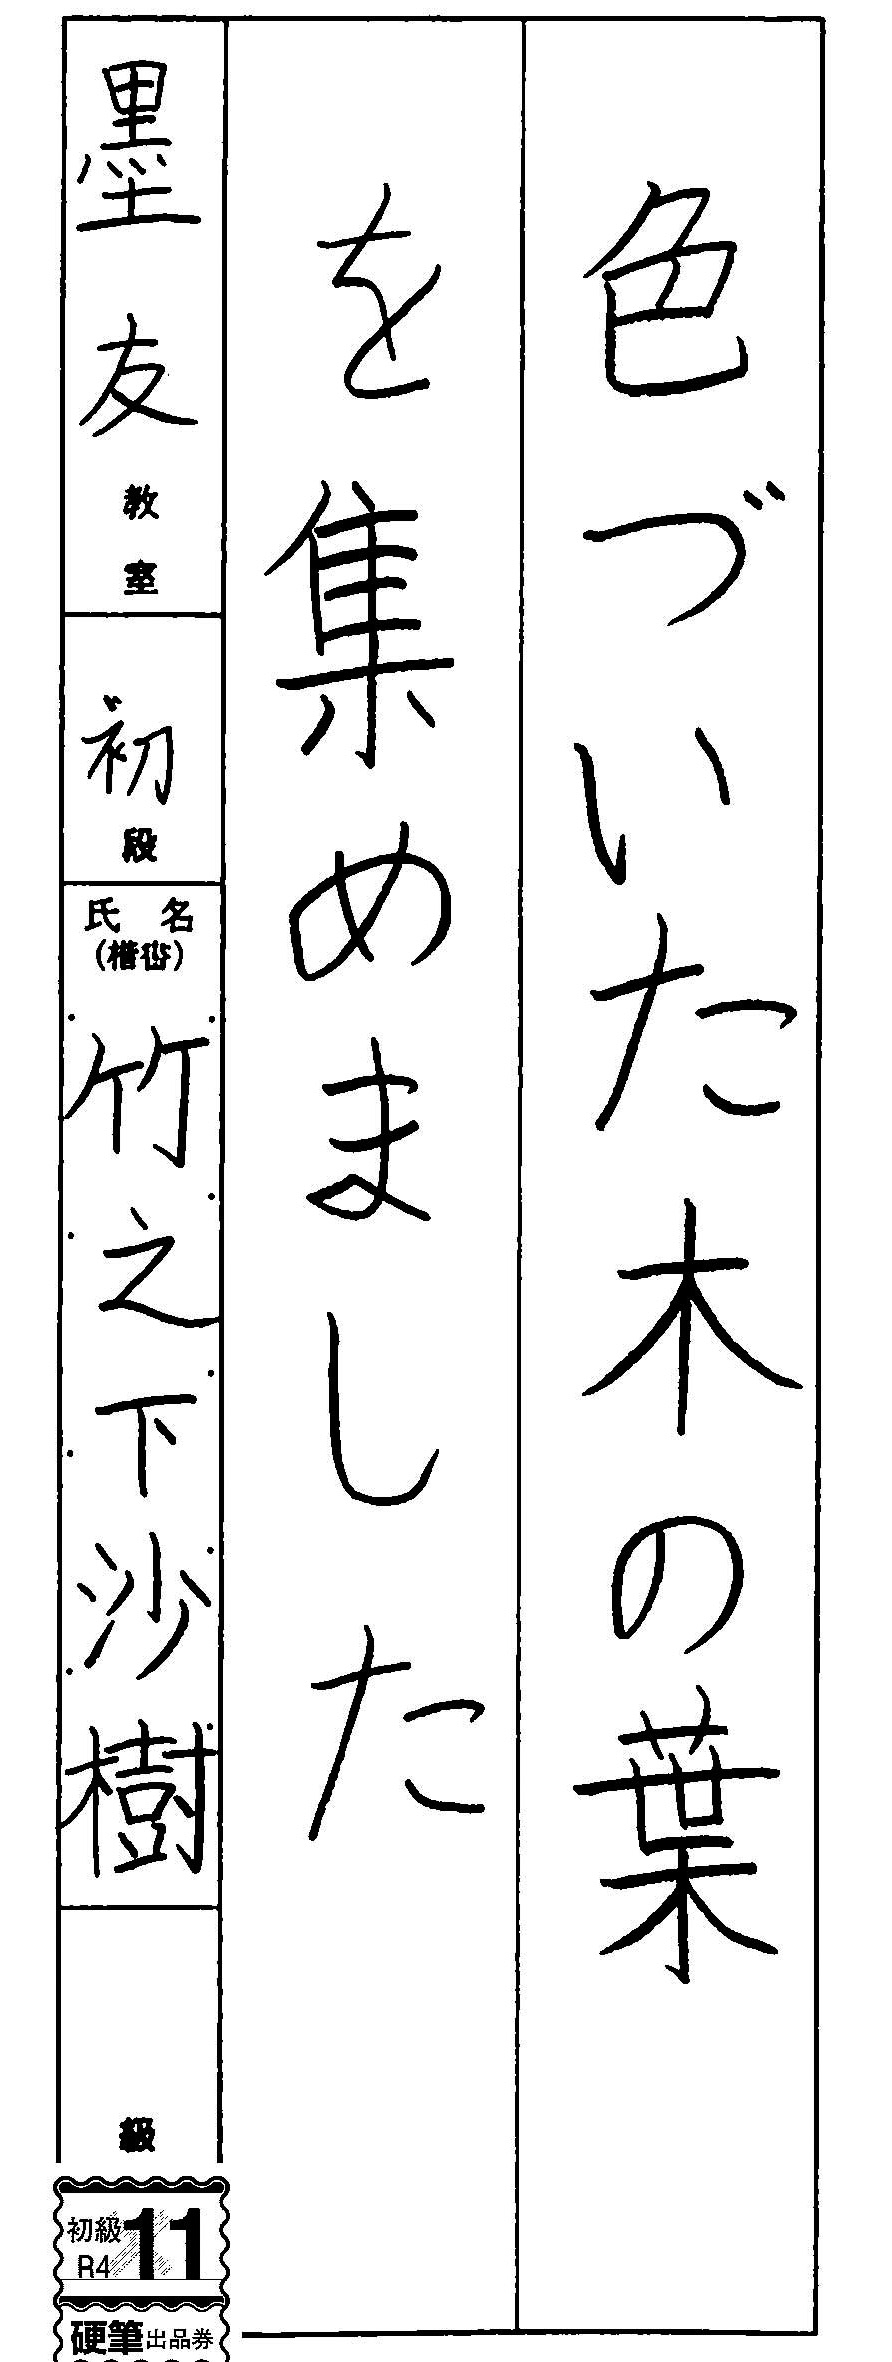 色づいた木の葉
を集めました
墨友教室
初段
氏名
(楷書)
竹之下沙樹
級
初級
R4
11
硬筆出品券